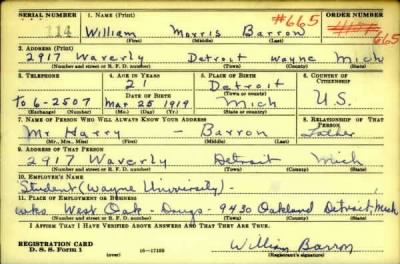 SERIAL NUMBER 1. NAME (Print) #665 ORDER NUMBER
114 William Morris Barron 665
(First) (Middle) (Last)
2. ADDRESS (Print)
2917 Waverly Detroit Wayne Mich
(Number and street or R. F. D. number) (Town) (County) (State)
3. TELEPHONE 4. AGE IN YEARS 5. PLACE OF BIRTH 6. COUNTRY OF CITIZENSHIP
21 Detroit
DATE OF BIRTH (Town or county)
To 6-2507 Mar 25 1919 Mich U.S.
(Exchange) (Number) (Mo.) (Day) (Yr.) (State or country)
7. NAME OF PERSON WHO WILL ALWAYS KNOW YOUR ADDRESS 8. RELATIONSHIP OF THAT PERSON
Mr Harry — Barron Father
(Mr., Mrs., Miss) (First) (Middle) (Last)
9. ADDRESS OF THAT PERSON
2917 Waverly Detroit Mich
(Number and street or R. F. D. number) (Town) (County) (State)
10. EMPLOYER'S NAME
Student (Wayne University) -
11. PLACE OF EMPLOYMENT OR BUSINESS
wks West Oak - Drugs - 9430 Oakland Detroit, Mich
(Number and street or R. F. D. number) (Town) (County) (State)
I AFFIRM THAT I HAVE VERIFIED ABOVE ANSWERS AND THAT THEY ARE TRUE.
REGISTRATION CARD
D. S. S. Form 1 (over) 16-17105 William Barron
(Registrant's signature)